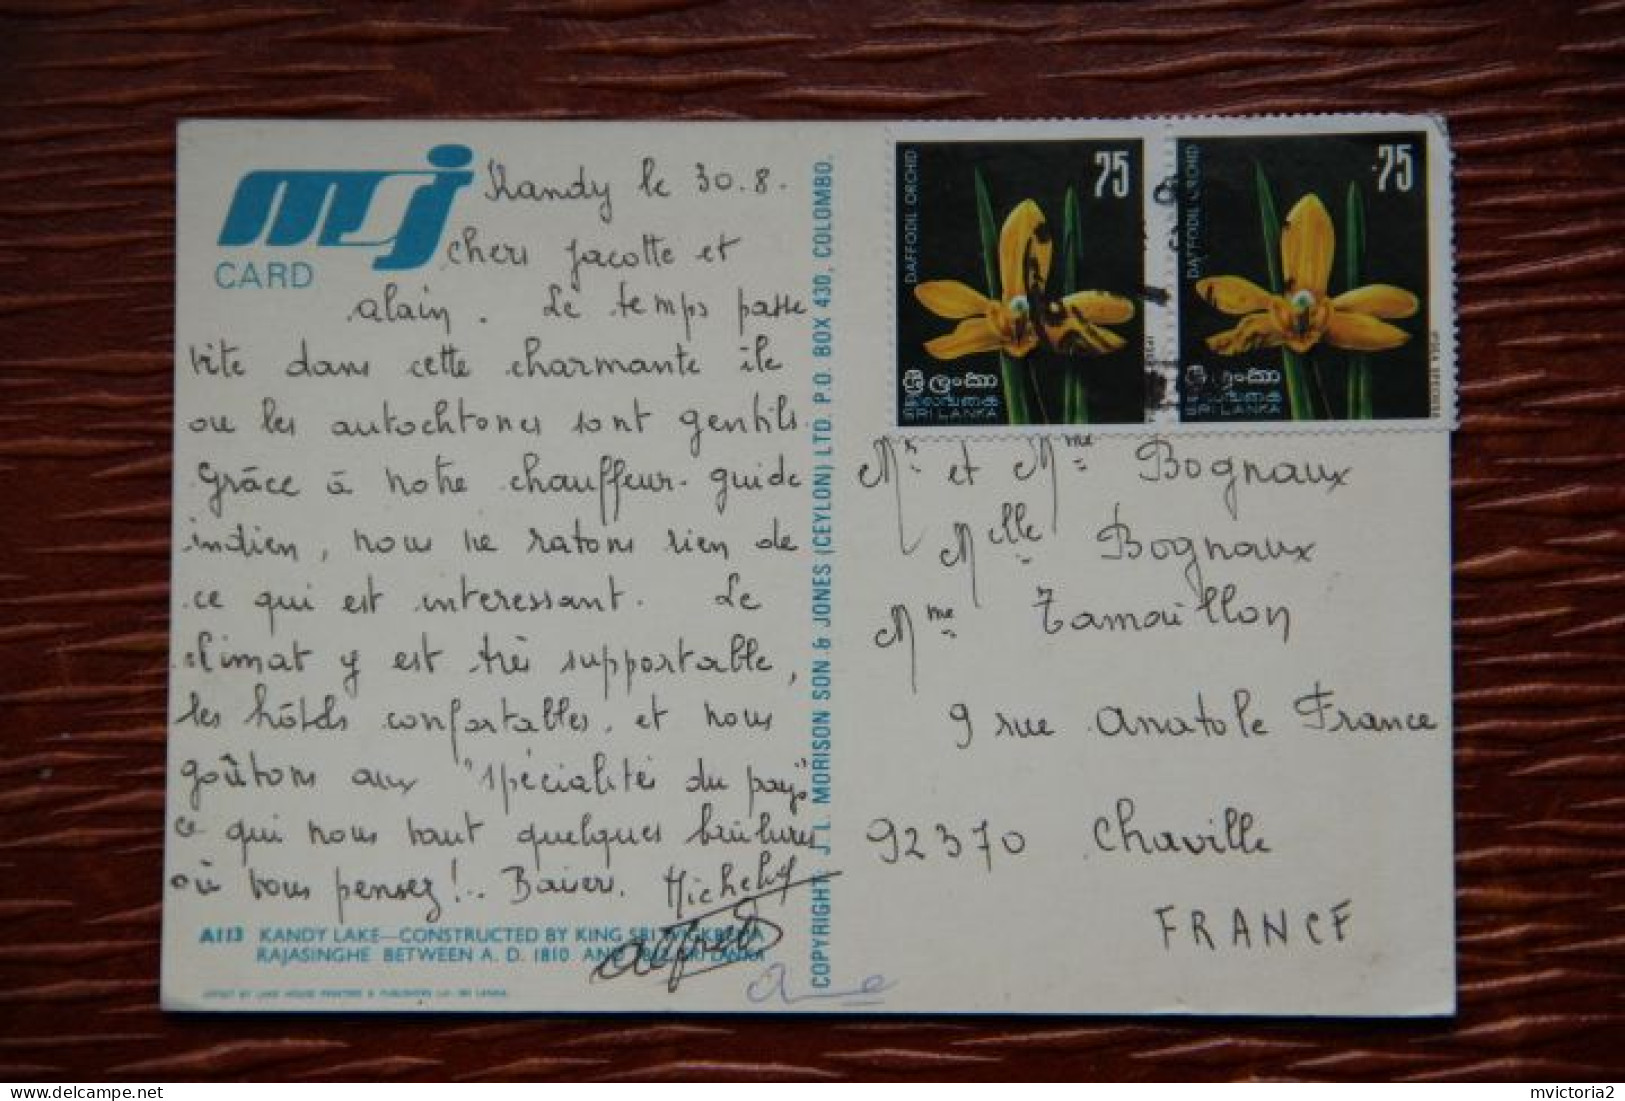 msj
CARD
Kandy le 30.8.
chers Jacotte et
Alain. Le temps passe
vite dans cette charmante île
ou les autochtones sont gentils.
Grâce à notre chauffeur-guide
indien, nous ne ratons rien de
ce qui est interessant. Le
climat y est très supportable,
les hôtels confortables, et nous
goûtons aux "spécialités du pays"
ce qui nous vaut quelques brûlures
où vous pensez!.. Baisers. Michelyf
Alfred
Anne
A113 KANDY LAKE—CONSTRUCTED BY KING SRI WICKREMA
RAJASINGHE BETWEEN A. D. 1810 AND 1812 SRI LANKA
COPYRIGHT. J. L. MORISON SON & JONES (CEYLON) LTD. P.O. BOX 430, COLOMBO.
DAFFODIL ORCHID
75
ශ්‍රී ලංකා
இலங்கை
SRI LANKA
DAFFODIL ORCHID
75
ශ්‍රී ලංකා
இலங்கை
SRI LANKA
Mr et Mme Bognaux
Melle Bognaux
Mme Tamouillon
9 rue Anatole France
92370 Chaville
FRANCE
mvictoria2